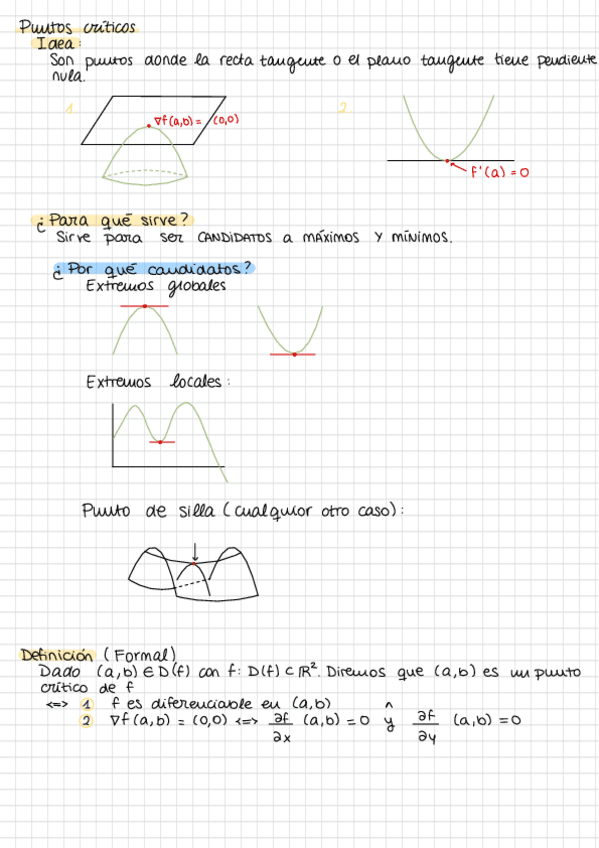 Puntos críticos
Idea:
Son puntos donde la recta tangente o el plano tangente tiene pendiente
nula.
1. 2.
∇f(a,b) = (0,0)
f'(a) = 0
¿Para qué sirve?
Sirve para ser CANDIDATOS a MÁXIMOS Y MÍNIMOS.
¿Por qué candidatos?
Extremos globales
Extremos locales:
Punto de silla (cualquior otro caso):
Definición (Formal)
Dado (a,b) ∈ D(f) con f: D(f) ⊂ ℝ². Diremos que (a,b) es un punto
crítico de f
<=> 1 f es diferenciable en (a,b)
2 ∇f(a,b) = (0,0) <=> ∂f/∂x (a,b) = 0 ^ y ∂f/∂y (a,b) = 0